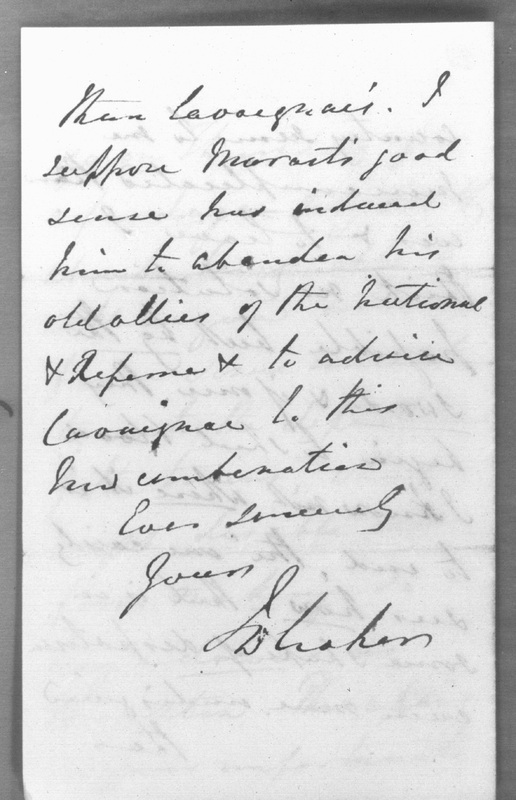 than Cavaignac's. I
suppose Marast's good
sense has induced
him to abandon his
old allies of the National
& Reforme & to advise
Cavaignac to this
new combination
Ever sincerely
Yours